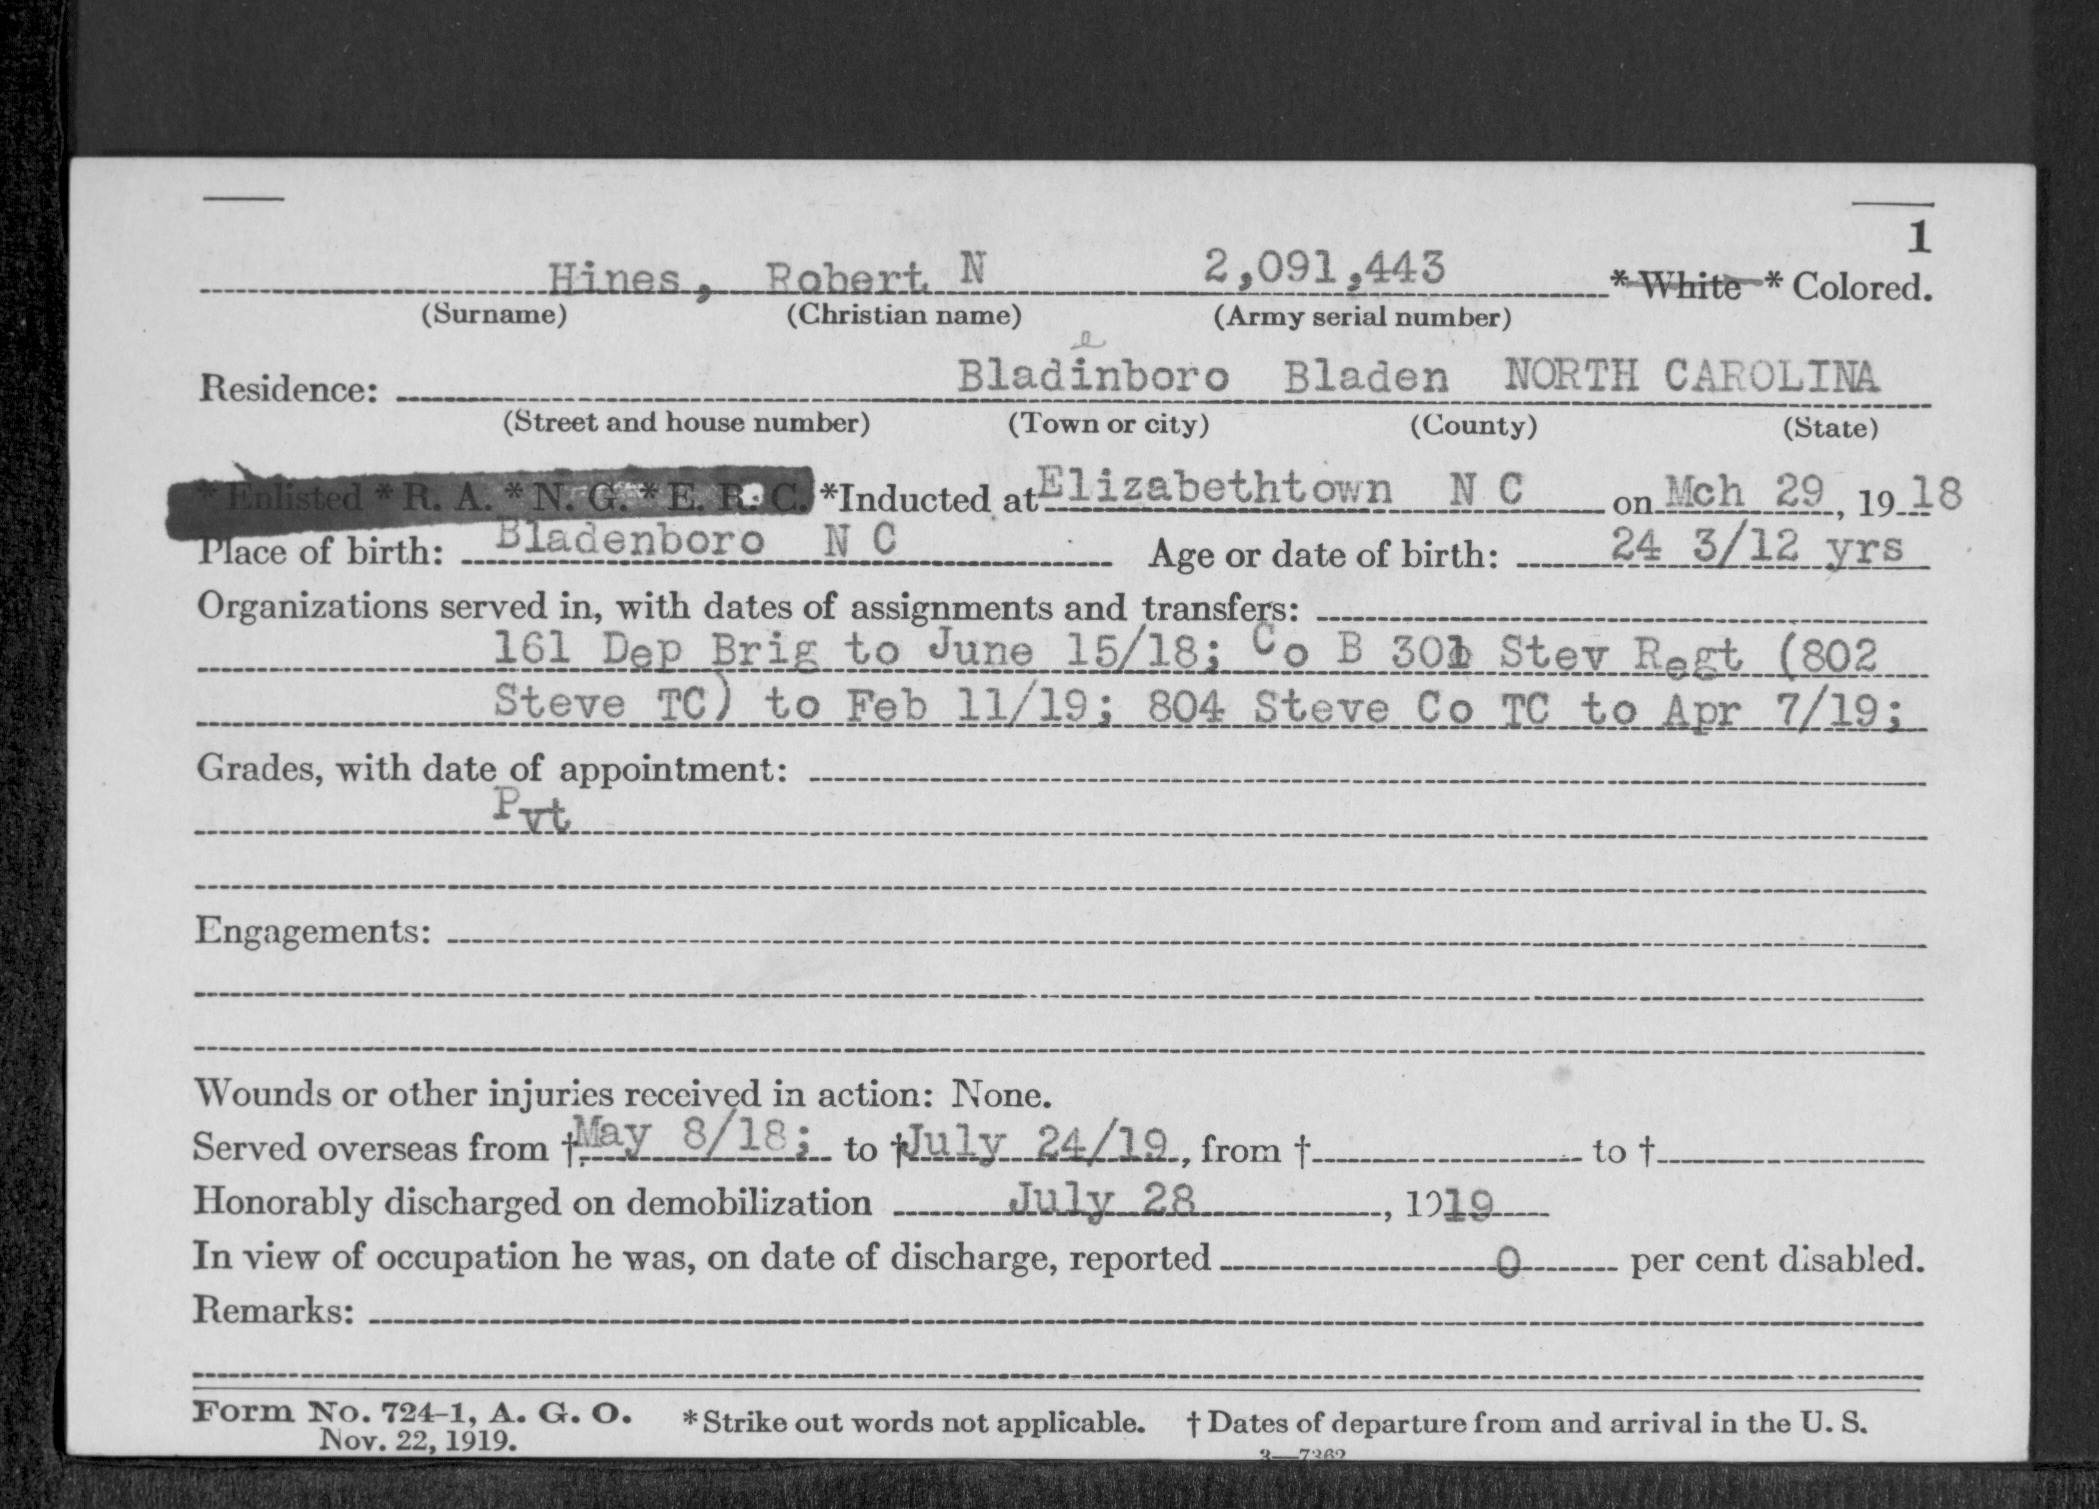 1
Hines, Robert N 2,091,443 *White *Colored.
(Surname) (Christian name) (Army serial number)
e
Residence: Bladinboro Bladen NORTH CAROLINA
(Street and house number) (Town or city) (County) (State)
*Enlisted *R. A. *N. G. *E. R. C. *Inducted at Elizabethtown N C on Mch 29, 1918
Place of birth: Bladenboro N C Age or date of birth: 24 3/12 yrs
Organizations served in, with dates of assignments and transfers:
161 Dep Brig to June 15/18; Co B 301 Stev Regt (802
Steve TC) to Feb 11/19; 804 Steve Co TC to Apr 7/19;
Grades, with date of appointment:
Pvt
Engagements:
Wounds or other injuries received in action: None.
Served overseas from † May 8/18; to † July 24/19, from † to †
Honorably discharged on demobilization July 28, 1919
In view of occupation he was, on date of discharge, reported 0 per cent disabled.
Remarks:
Form No. 724-1, A. G. O. *Strike out words not applicable. † Dates of departure from and arrival in the U. S.
Nov. 22, 1919. 3—7362